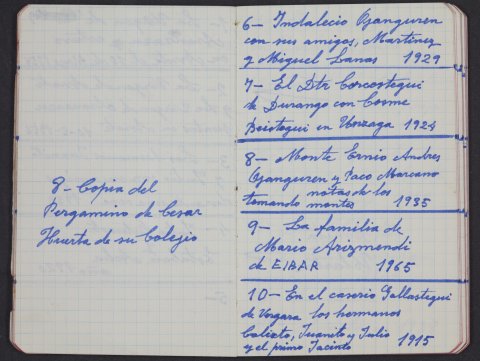 8- Copia del
Pergamino de Cesar
Huerta de su Colegio
6- Indalecio Ojanguren
con sus amigos, Martinez
y Miguel Lanas 1929
7- El Dtr Corcostegui
de Durango con Cosme
Beistegui en Unzaga 1924
8- Monte Ernio Andres
Ojanguren y Paco Marcano
notas de los
tomando montes 1935
9- La familia de
Mario Arizmendi
de EIBAR 1965
10- En el caserio Gallastegui
de Vergara los hermanos
Calixto, Juanito y Julio
y el primo Jacinto 1915